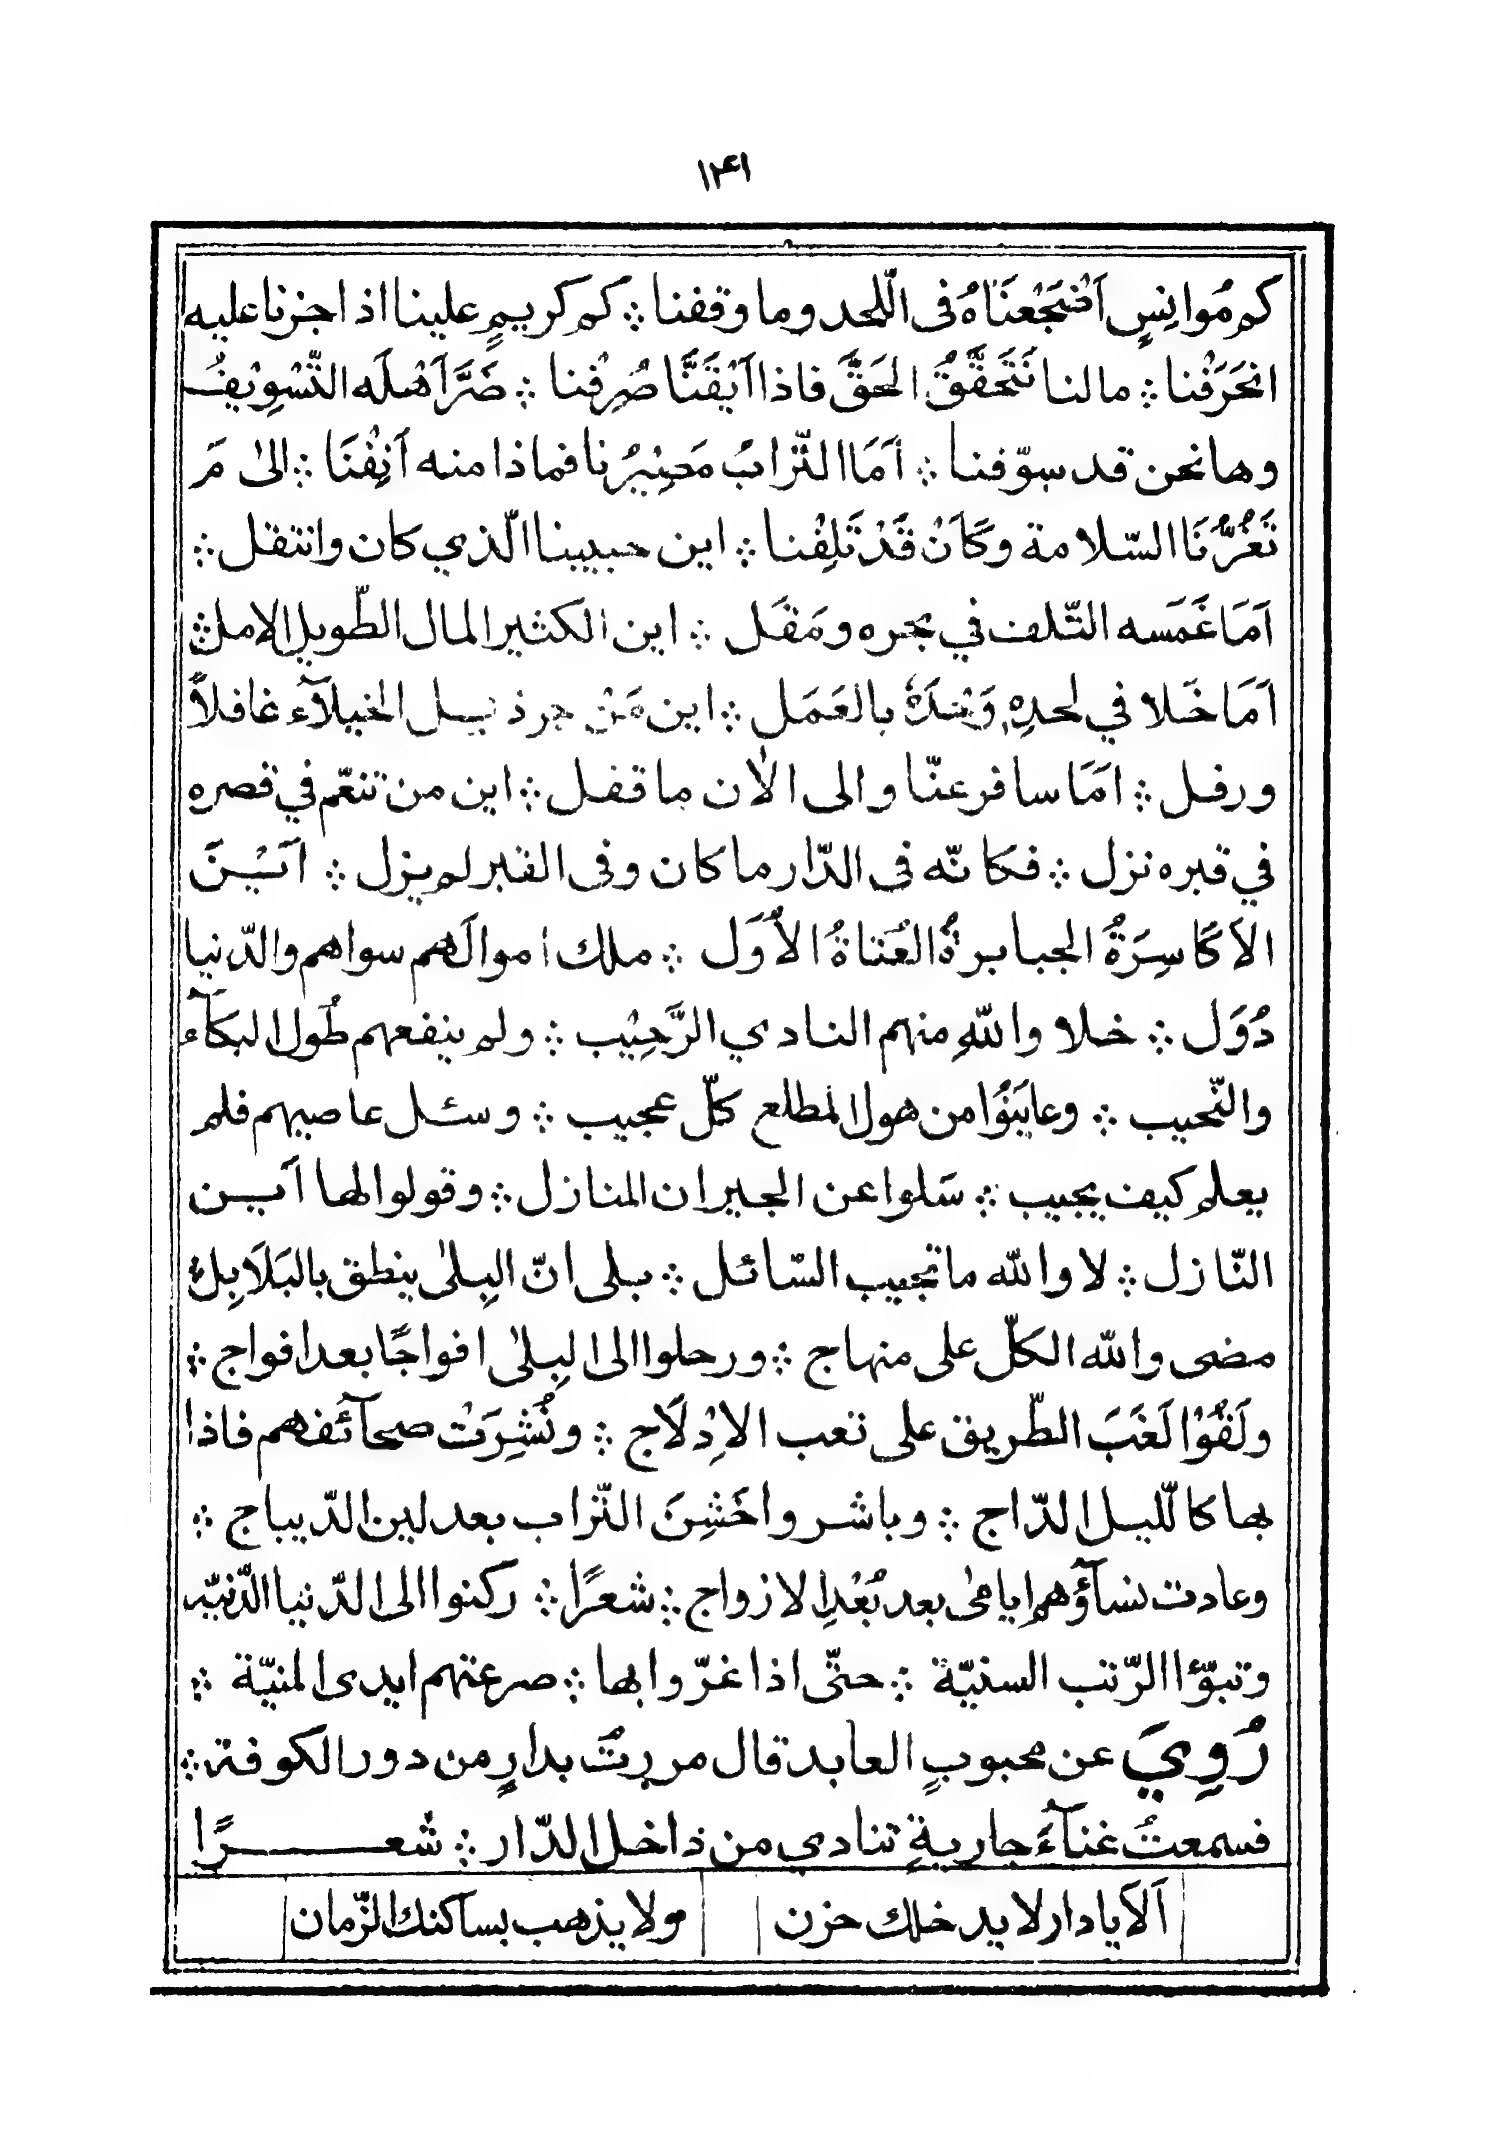 ١٤١
كم مُوانِسٍ اَضْجَعْنَاهُ فى اللّحد وما وقفنا ⁘ كم كريمٍ علينا اذا جزنا عليه
انحَرَفْنا ⁘ مالنا نَتَحَقَّقُ الحَقَّ فاذا اَيْقَنَّا صُرِفْنا ⁘ ضَرَّ اَهْلَه التّسْوِيْفُ
وها نحن قد سوّفنا ⁘ اَمَا التّرابُ مَصِيْرُنا فماذا منه اَنِفْنَا ⁘ الىٰ مَ
تَغُرُّنَا السّلامة وكَاَنْ قَدْ تَلِفْنا ⁘ اين حبيبنا الّذي كان وانتقل ⁘
اَمَا غَمَسه التّلف في بحره ومَقَل ⁘ اين الكثير المال الطّويل الامل ⁘
اَمَا خَلا في لحدِهٖ وَحْدَهٗ بالعَمَل ⁘ اين مَنْ جر ذيل الخيلآء غافلاً
ورفل ⁘ امَا سافر عنّا والى الاٰن ما قفل ⁘ اين من تنعّم في قصره
في قبره نزل ⁘ فكانّه فى الدّار ما كان وفى القبر لم يزل ⁘ اَيْنَ
الاَكَاسِرَةُ الجبابرةُ العُتاةُ الاُوَل ⁘ ملك اموالَهم سواهم والدّنيا
دُوَل ⁘ خلا واللّٰهِ منهم النادي الرَّحِيْب ⁘ ولم ينفعهم طُول البكآء
والنّحيب ⁘ وعايَنُوْا من هول المطلع كلّ عجيب ⁘ وسئل عاصيهم فلم
يعلم كيف يجيب ⁘ سَلوا عن الجيران المنازل ⁘ وقولوا لها اَين
النّازل ⁘ لا واللّٰه ما تجيب السّائل ⁘ بلى انّ البِلىٰ ينطق بالبَلَابِل ⁘
مضى واللّٰه الكلّ على منهاج ⁘ ورحلوا الى البِلىٰ افواجًا بعد افواج ⁘
ولَقُوْا لَغَبَ الطّريق على تعب الاِدْلَاج ⁘ ونُشِرَتْ صحآئفهم فاذا
بها كالّليل الدّاج ⁘ وباشروا خَشِنَ التّراب بعد لين الدّيباج ⁘
وعادت نسآؤهم ايامىٰ بعد بُعْدِ الازواج ⁘ شعرًا ⁘ ركنوا الى الدّنيا الدّنيّه
وتبوّؤا الرّتب السنيّة ⁘ حتّى اذا غرّوا بها ⁘ صرعتهم ايدى المنيّة ⁘
رُوِيَ عن محبوبٍ العابد قال مررتُ بدارٍ من دور الكوفة ⁘
فسمعتُ غنآءَ جاريةٍ تنادي من داخل الدّار ⁘ شعـــرًا
اَلاَ يا دار لا يدخلك حزن ولا يذهب بساكنك الزّمان